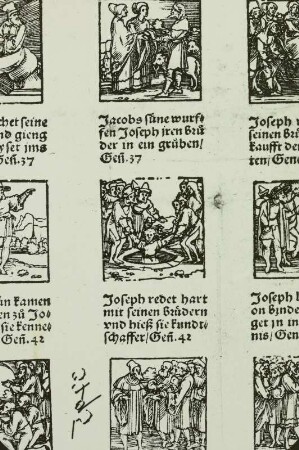 chet seine
nd gieng
yset jns
Geñ.37
Jacobs süne wurf⸗
fen Joseph jren brü
der in ein grüben/
Geñ.37
Joseph
seinen brü
kaufft de
ten/Gen
kamen
en zů Jo⸗
sie kenne
Geñ. 42
Joseph redet hart
mit seinen brüdern
vnd hieß sie kundt⸗
schaffer/Geñ.42
Joseph
on binde
get in
nis/Gen